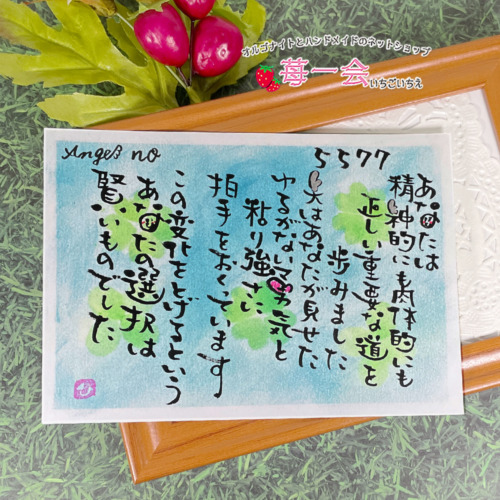 オルゴナイトとハンドメイドのネットショップ
苺一会
いちごいちえ
Angel no 5577
あなたは
精神的にも肉体的にも
正しい重要な道を
歩みました
天はあなたが見せた
ゆるがない勇気と
粘り強さに
拍手をおくっています
この変化をとげるという
あなたの選択は
賢いものでした